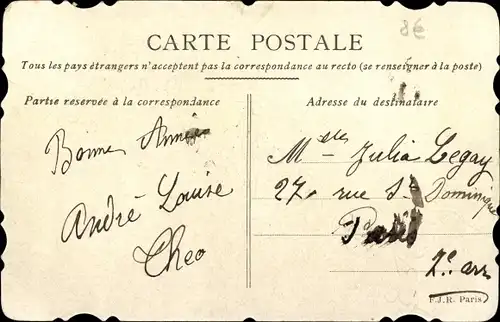 8€
CARTE POSTALE
Tous les pays étrangers n'acceptent pas la correspondance au recto (se renseigner à la poste)
Partie reservée à la correspondance
Bonne Année
André Louise
Theo
Adresse du destinataire
Melle Julia Legay
27, rue St Dominique
Paris
7e arr
F.J.R. Paris